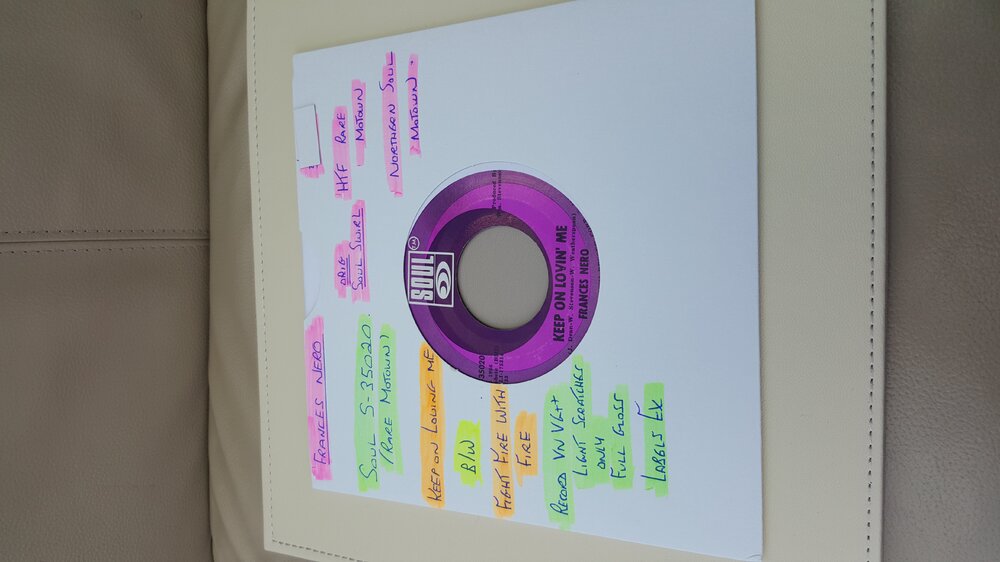 FRANCES NERO
ORIG
SOUL SWIRL
HTF RARE
MOTOWN
NORTHERN SOUL
MOTOWN.
SOUL S-35020.
(RARE MOTOWN)
KEEP ON LOVING ME
B/W
FIGHT FIRE WITH
FIRE
RECORD VN VG++
LIGHT SCRATCHES
ONLY
FULL GLOSS
LABELS EX
SOUL
T.M.
Produced By
35020
KEEP ON LOVIN' ME
J. Dean-W. Stevenson-W. Weatherspoon)
FRANCES NERO